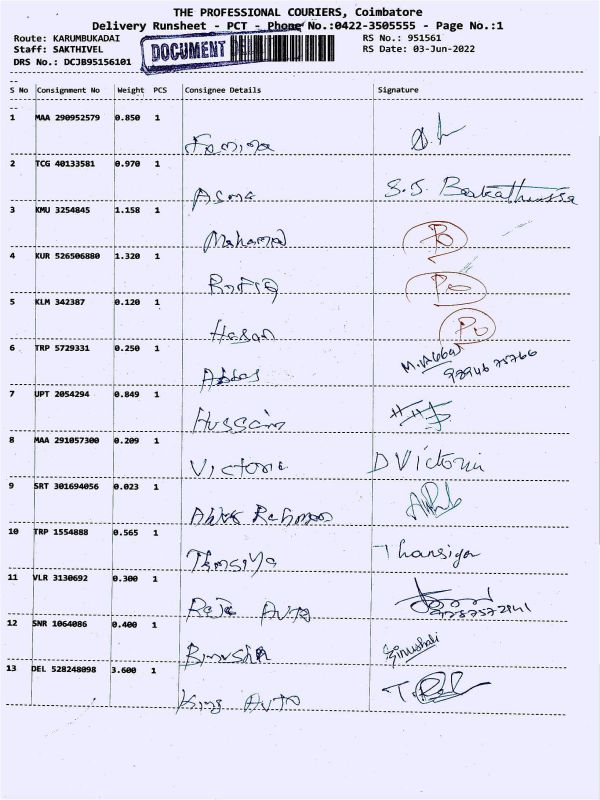 THE PROFESSIONAL COURIERS, Coimbatore
Delivery Runsheet - PCT - Phone No.:0422-3505555 - Page No.:1
Route: KARUMBUKADAI RS No.: 951561
Staff: SAKTHIVEL DOCUMENT RS Date: 03-Jun-2022
DRS No.: DCJB95156101
S No Consignment No Weight PCS Consignee Details Signature
1 MAA 290952579 0.850 1
2 TCG 40133581 0.970 1
Asma S.J. Barkathunissa
3 KMU 3254845 1.158 1
Mohamed
4 KUR 526506880 1.320 1
Rafiq
5 KLM 342387 0.120 1
Hasan
6 TRP 5729331 0.250 1
Abbas M. Abbas
7 UPT 2054294 0.849 1
Hussain
8 MAA 291057300 0.209 1
Victoria D Victoria
9 SRT 301694056 0.023 1
Rahman
10 TRP 1554888 0.565 1
Thansiya Thansiya
11 VLR 3130692 0.300 1
Raja Auto
12 SNR 1064086 0.400 1
Binusha
13 DEL 528248098 3.600 1
King Auto